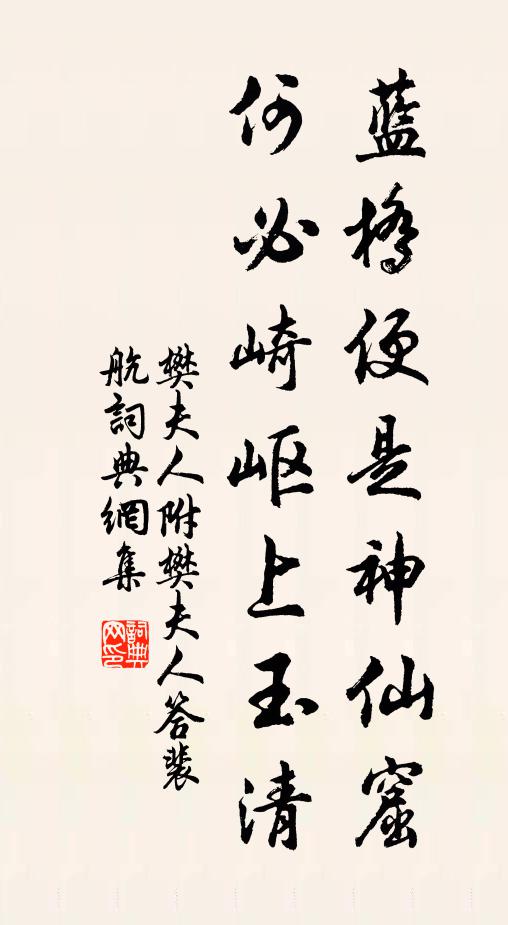 藍橋便是神仙窟
何必崎嶇上玉清
樊夫人附樊夫人答裴
航詞典網集
詞典
网印